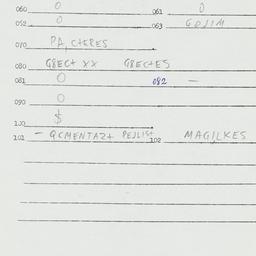 060 0 061 0
052 0 063 GDJIM
070 PA, CTERES
080 G8ECT XX G8ECTES
081 0 082 —
090 0
100 $
101 – QCMENTAZT PEJLIST 102 MAGILKES